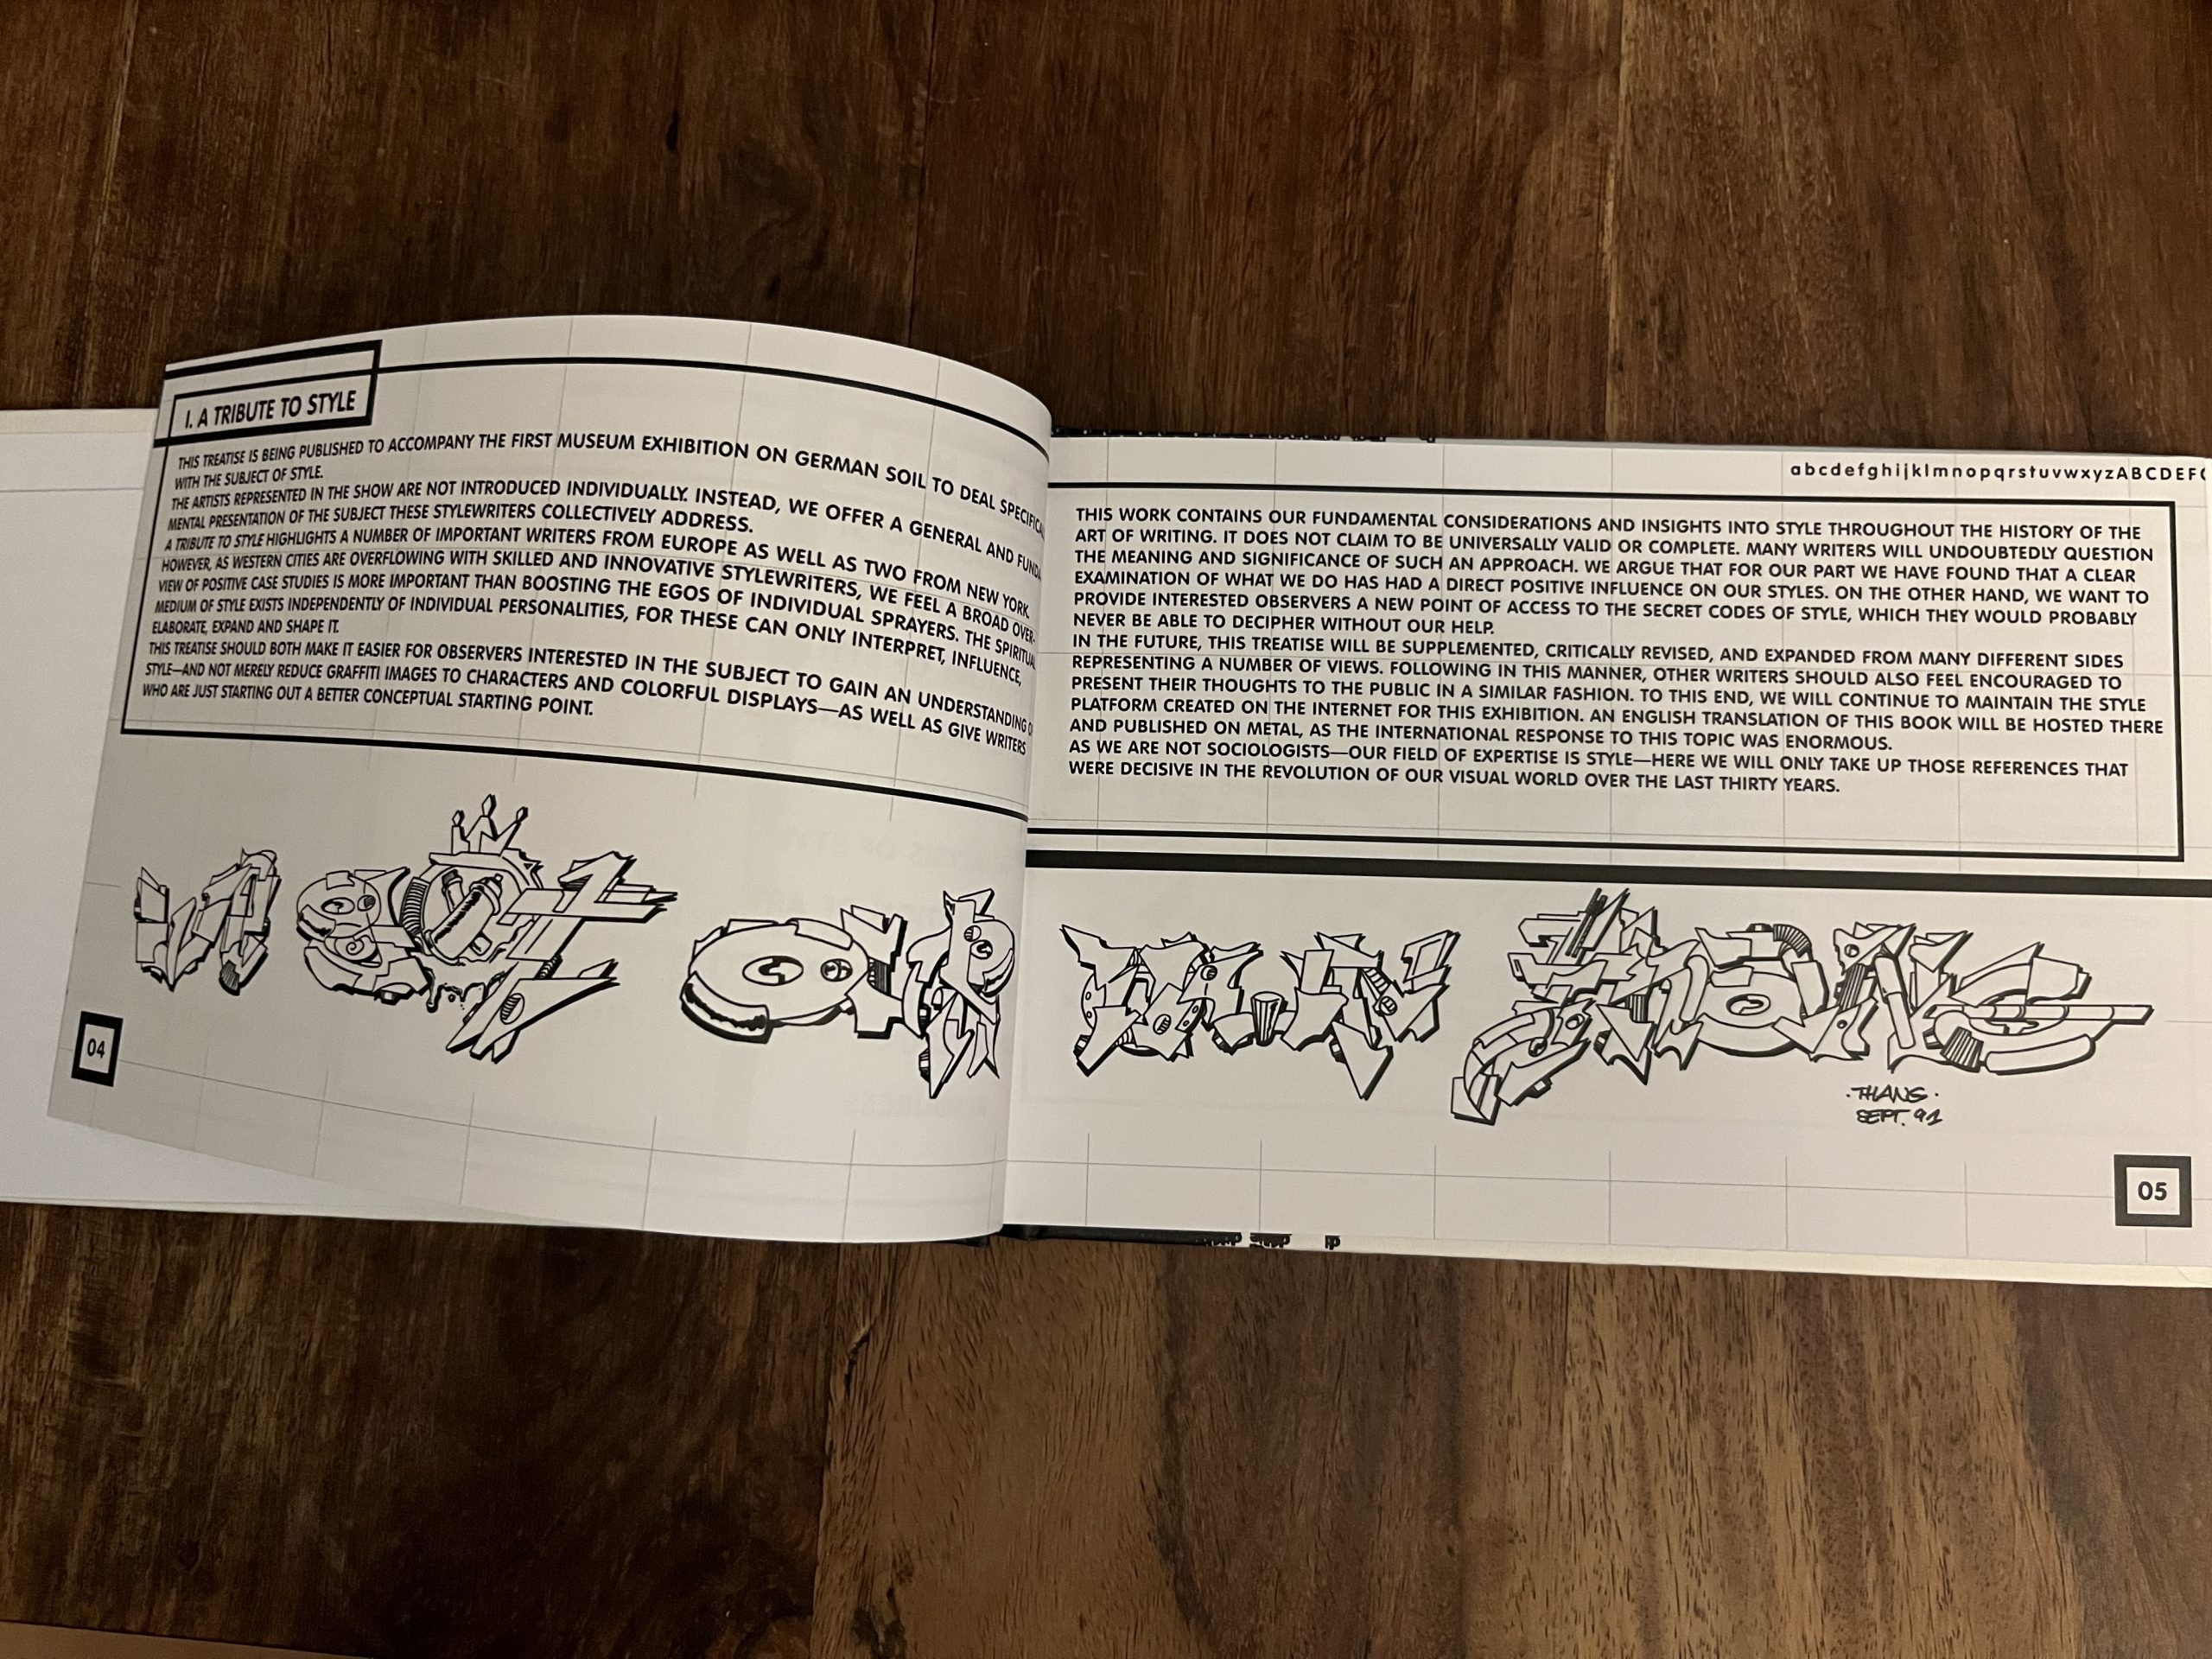 I. A TRIBUTE TO STYLE
THIS TREATISE IS BEING PUBLISHED TO ACCOMPANY THE FIRST MUSEUM EXHIBITION ON GERMAN SOIL TO DEAL SPECIFICAL
WITH THE SUBJECT OF STYLE.
THE ARTISTS REPRESENTED IN THE SHOW ARE NOT INTRODUCED INDIVIDUALLY. INSTEAD, WE OFFER A GENERAL AND FUNDA
MENTAL PRESENTATION OF THE SUBJECT THESE STYLEWRITERS COLLECTIVELY ADDRESS.
A TRIBUTE TO STYLE HIGHLIGHTS A NUMBER OF IMPORTANT WRITERS FROM EUROPE AS WELL AS TWO FROM NEW YORK.
HOWEVER, AS WESTERN CITIES ARE OVERFLOWING WITH SKILLED AND INNOVATIVE STYLEWRITERS, WE FEEL A BROAD OVER-
VIEW OF POSITIVE CASE STUDIES IS MORE IMPORTANT THAN BOOSTING THE EGOS OF INDIVIDUAL SPRAYERS. THE SPIRITUAL
MEDIUM OF STYLE EXISTS INDEPENDENTLY OF INDIVIDUAL PERSONALITIES, FOR THESE CAN ONLY INTERPRET, INFLUENCE,
ELABORATE, EXPAND AND SHAPE IT.
THIS TREATISE SHOULD BOTH MAKE IT EASIER FOR OBSERVERS INTERESTED IN THE SUBJECT TO GAIN AN UNDERSTANDING O
STYLE—AND NOT MERELY REDUCE GRAFFITI IMAGES TO CHARACTERS AND COLORFUL DISPLAYS—AS WELL AS GIVE WRITERS
WHO ARE JUST STARTING OUT A BETTER CONCEPTUAL STARTING POINT.
04
abcdefghijklmnopqrstuvwxyzABCDEF
THIS WORK CONTAINS OUR FUNDAMENTAL CONSIDERATIONS AND INSIGHTS INTO STYLE THROUGHOUT THE HISTORY OF THE
ART OF WRITING. IT DOES NOT CLAIM TO BE UNIVERSALLY VALID OR COMPLETE. MANY WRITERS WILL UNDOUBTEDLY QUESTION
THE MEANING AND SIGNIFICANCE OF SUCH AN APPROACH. WE ARGUE THAT FOR OUR PART WE HAVE FOUND THAT A CLEAR
EXAMINATION OF WHAT WE DO HAS HAD A DIRECT POSITIVE INFLUENCE ON OUR STYLES. ON THE OTHER HAND, WE WANT TO
PROVIDE INTERESTED OBSERVERS A NEW POINT OF ACCESS TO THE SECRET CODES OF STYLE, WHICH THEY WOULD PROBABLY
NEVER BE ABLE TO DECIPHER WITHOUT OUR HELP.
IN THE FUTURE, THIS TREATISE WILL BE SUPPLEMENTED, CRITICALLY REVISED, AND EXPANDED FROM MANY DIFFERENT SIDES
REPRESENTING A NUMBER OF VIEWS. FOLLOWING IN THIS MANNER, OTHER WRITERS SHOULD ALSO FEEL ENCOURAGED TO
PRESENT THEIR THOUGHTS TO THE PUBLIC IN A SIMILAR FASHION. TO THIS END, WE WILL CONTINUE TO MAINTAIN THE STYLE
PLATFORM CREATED ON THE INTERNET FOR THIS EXHIBITION. AN ENGLISH TRANSLATION OF THIS BOOK WILL BE HOSTED THERE
AND PUBLISHED ON METAL, AS THE INTERNATIONAL RESPONSE TO THIS TOPIC WAS ENORMOUS.
AS WE ARE NOT SOCIOLOGISTS—OUR FIELD OF EXPERTISE IS STYLE—HERE WE WILL ONLY TAKE UP THOSE REFERENCES THAT
WERE DECISIVE IN THE REVOLUTION OF OUR VISUAL WORLD OVER THE LAST THIRTY YEARS.
·THANG·
SEPT. 91
05